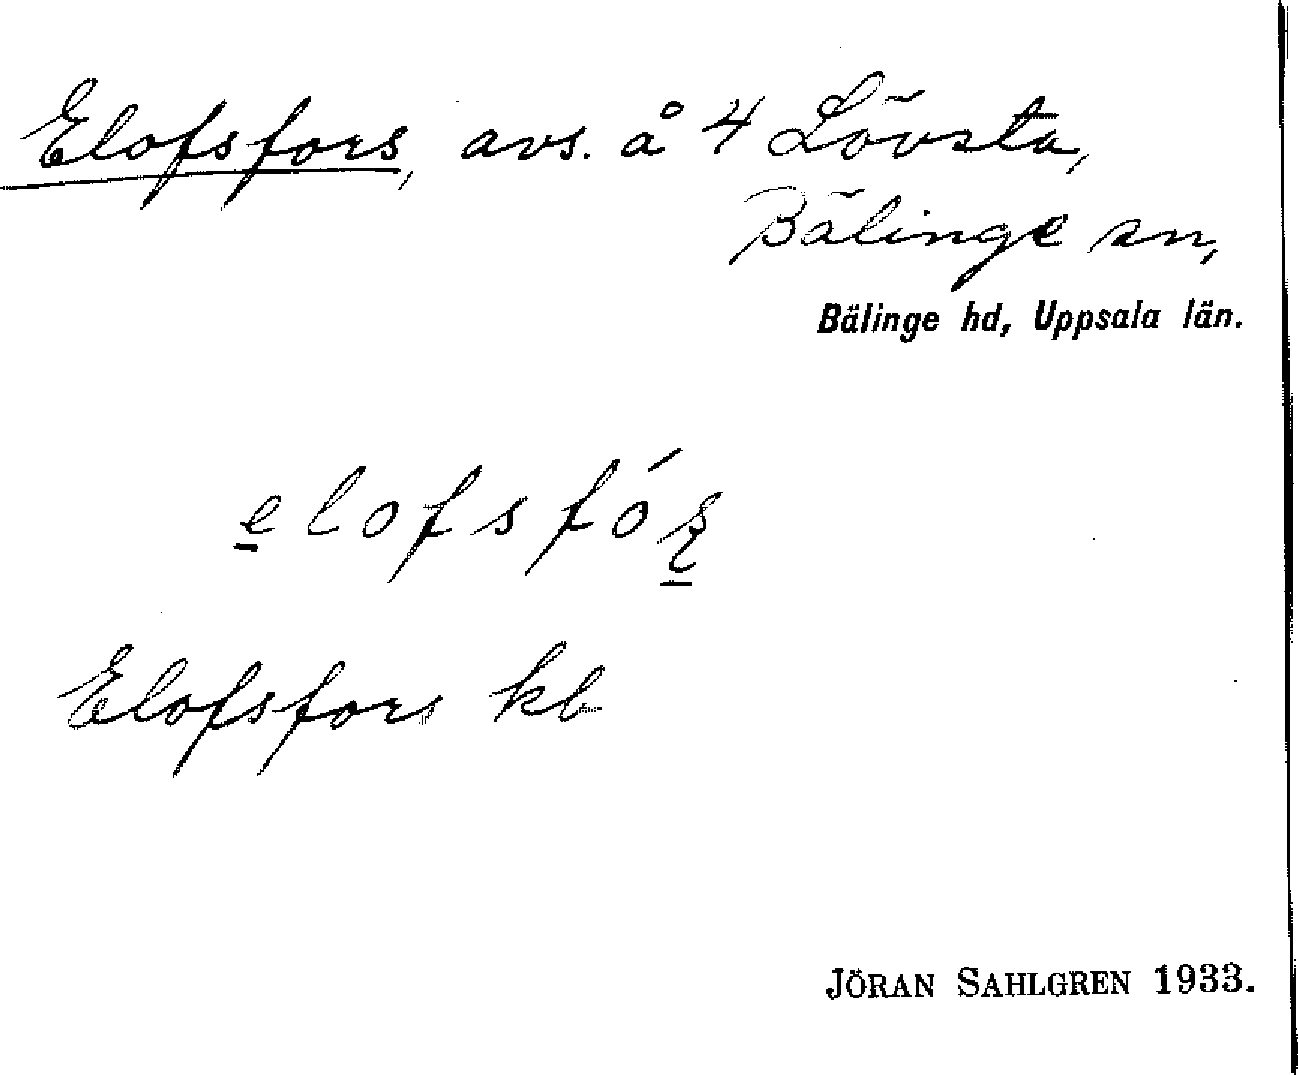 Elofsfors, avs. å 4 Lövsta,
Bälinge sn,
Bälinge hd, Uppsala län.
Elofsfors kb
JÖRAN SAHLGREN 1933.